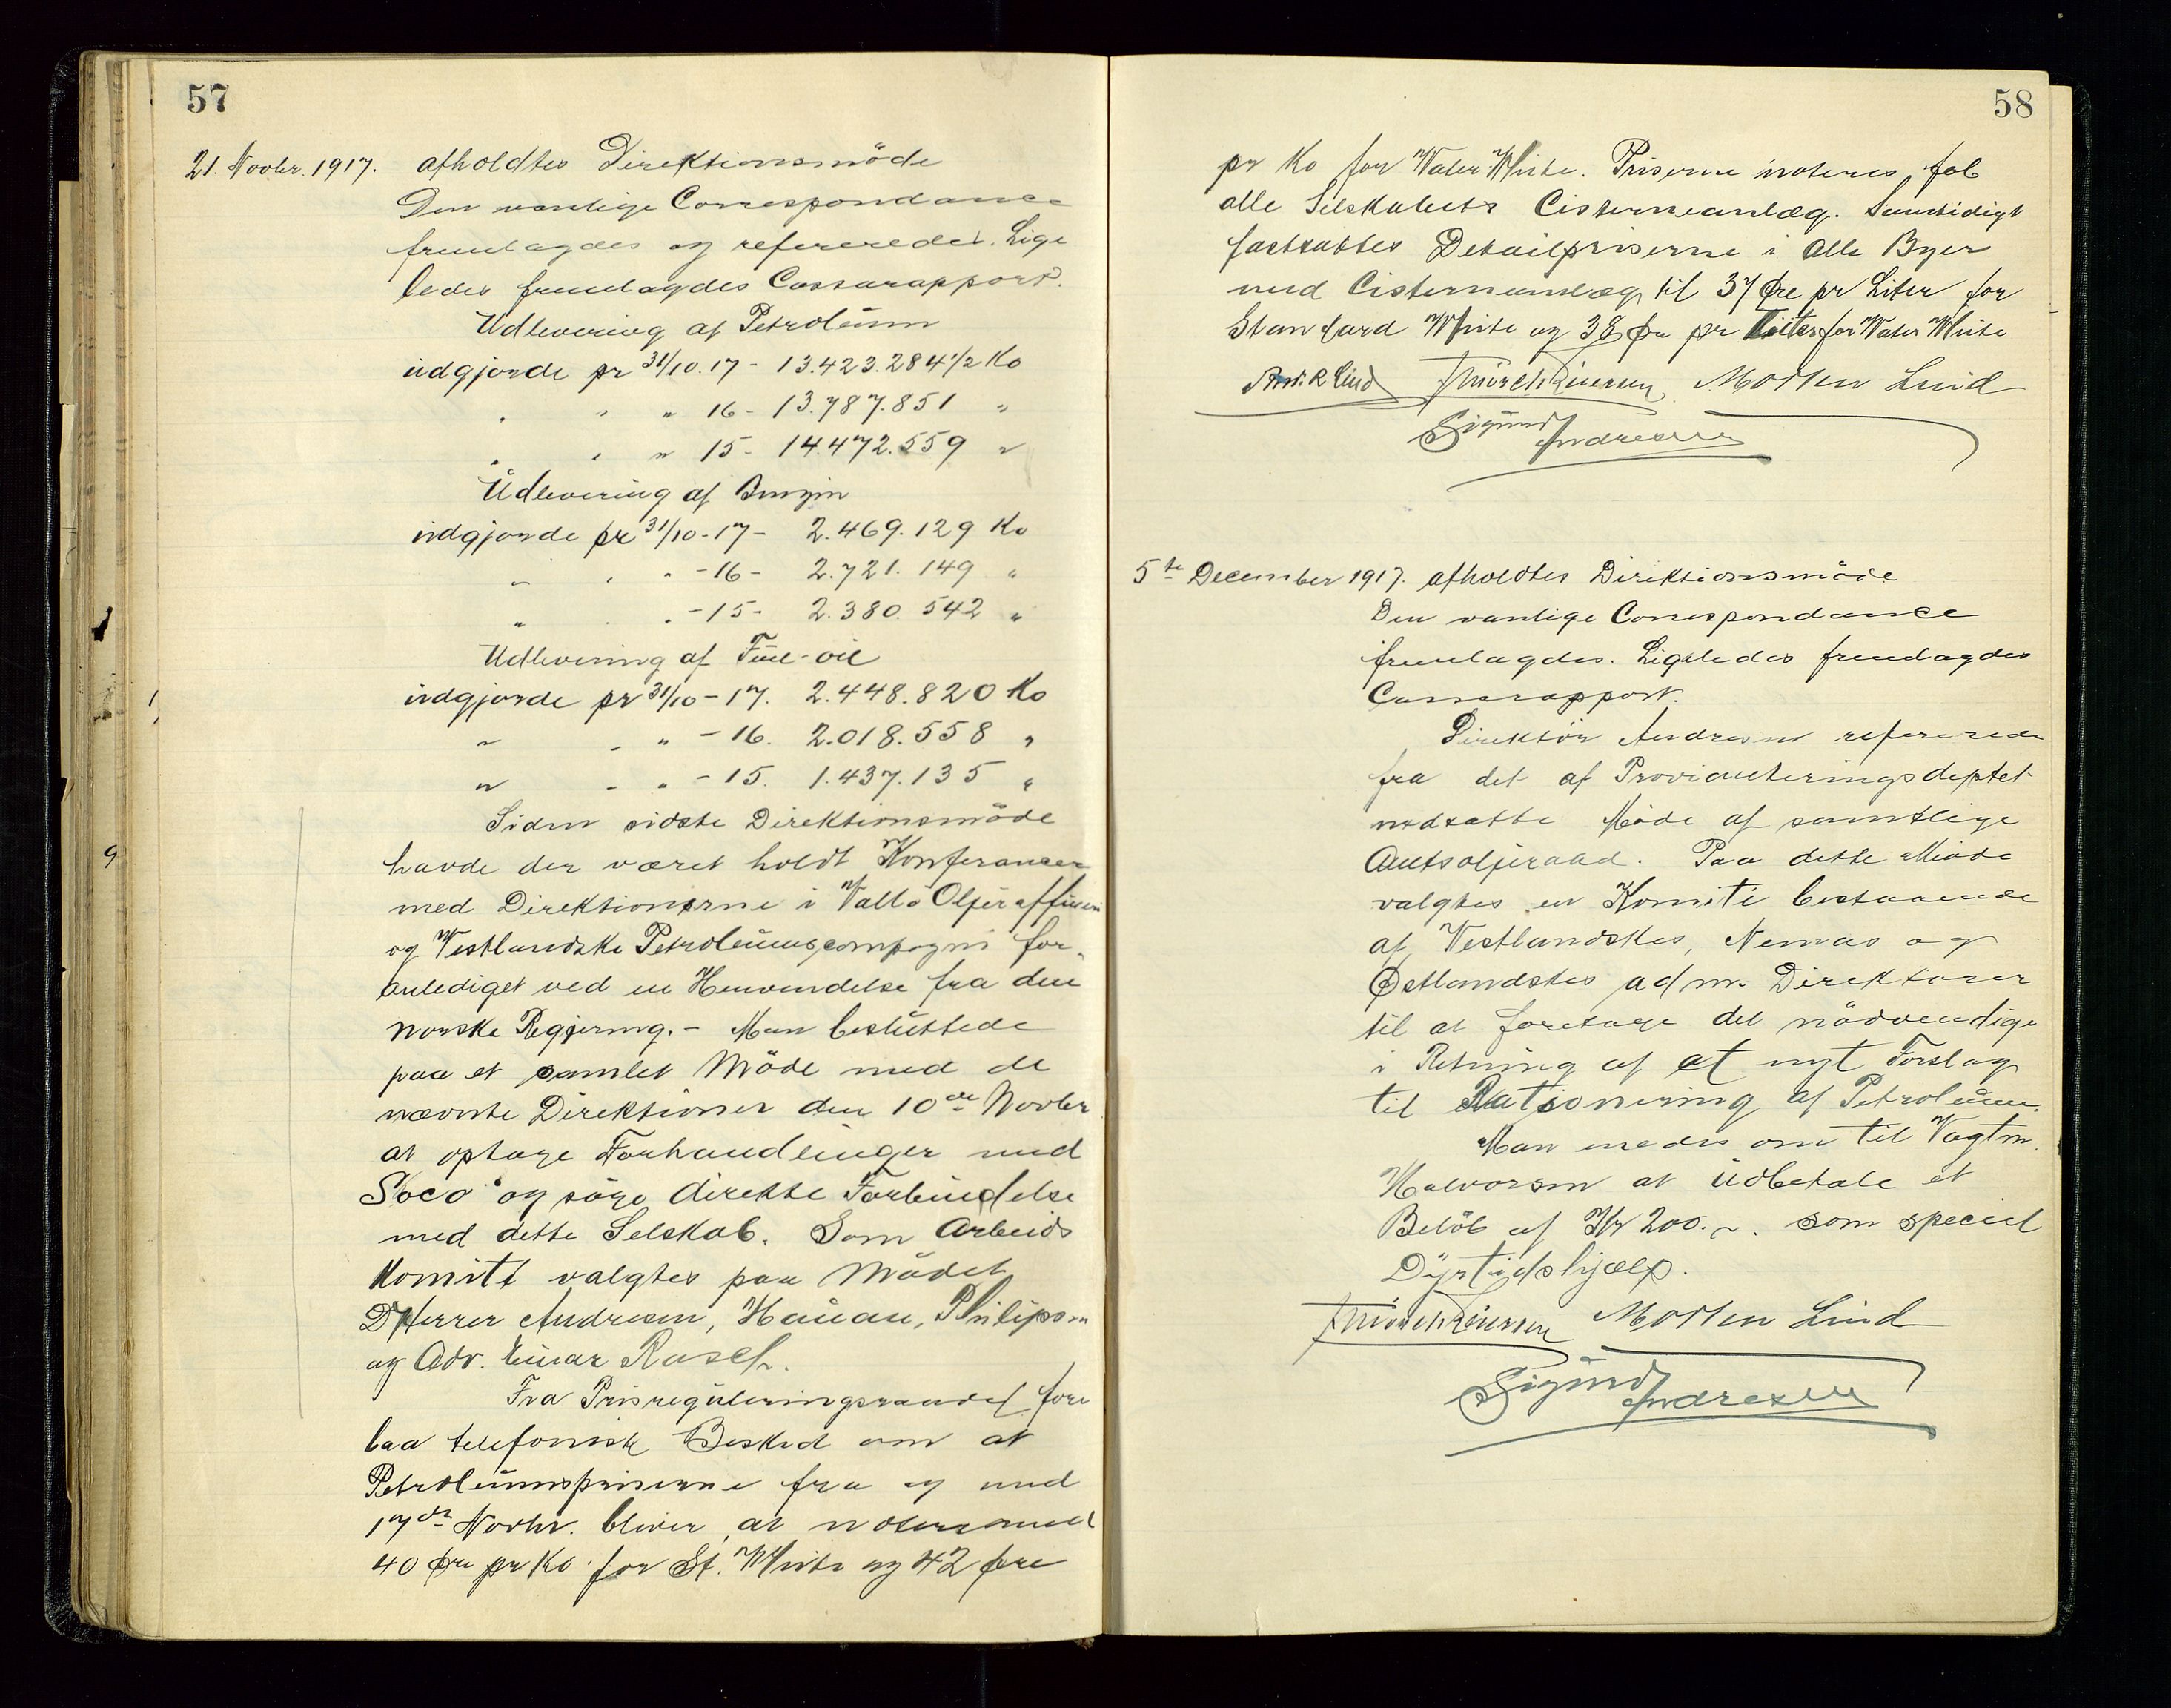 57
21. Novbr. 1917. afholdtes Direktionsmöde
Den vanlige Correspondance
fremlagdes og refereredes. Lige
ledes fremlagdes Cassarapport.
Udlevering af Petroleum
udgjorde pr 31/10. 17 - 13.423.284 1/2 Ko
" " " 16 - 13.787.851 "
" " " 15 - 14.472.559 "
Udlevering af Benzin
udgjorde pr 31/10 - 17 - 2.469.129 Ko
" " " - 16 - 2.721.149 "
" " " - 15 - 2.380.542 "
Udlevering af Fuel-oil
udgjorde pr 31/10 - 17. 2.448.820 Ko
" " " - 16. 2.018.558 "
" " " - 15. 1.437.135 "
Siden sidste Direktionsmöde
havde der været holdt Konferancer
med Direktionerne i Vallö Oljeraffineri
og Vestlandske Petroleumscompagni for-
anlediget ved en Henvendelse fra den
norske Regjering. - Man besluttede
paa et samlet Möde med de
nævnte Direktioner den 10de Novbr
at optage Forhandlinger med
"Soco" og söge direkte Forbindelse
med dette Selskab. Som Arbeids
Komite valgtes paa Mödet
D'Herrer Andresen, Hanau, Philipson
og Adv. Einar Rasch.
Fra Prisreguleringsraadet fore
laa telefonisk Besked om at
Petroleumspriserne fra og med
17de Novbr. bliver at notere med
40 øre pr Ko. for St. White og 42 øre
58
pr Ko for Water White. Priserne noteres fob
alle Selskabets Cisterneanlæg. Samtidigt
fastsattes Detailpriserne i alle Byer
med Cisterneanlæg til 37 Øre pr Liter for
Standard White og 38 øre pr Liter for Water White
Lind Mørch Reiersen Morten Lind
Sigurd Andresen
5te December 1917. afholdtes Direktionsmöde
Den vanlige Correspondance
fremlagdes. Ligeledes fremlagdes
Cassarapport.
Direktör Andresen refererede
fra det af Provianteringsdeptet
nedsatte Möde af samtlige
Amtsoljeraad. Paa dette Möde
valgtes en Komite bestaaende
af Vestlandskes, Nemas og
Østlandskes adm. Direktører
til at foretage det nödvendige
i Retning af et nyt Forslag
til Rationering af Petroleum.
Man enedes om til Vagtm.
Halvorsen at udbetale et
Belöb af Kr 200.- som speciel
Dyrtidshjælp.
Mørch Reiersen Morten Lind
Sigurd Andresen